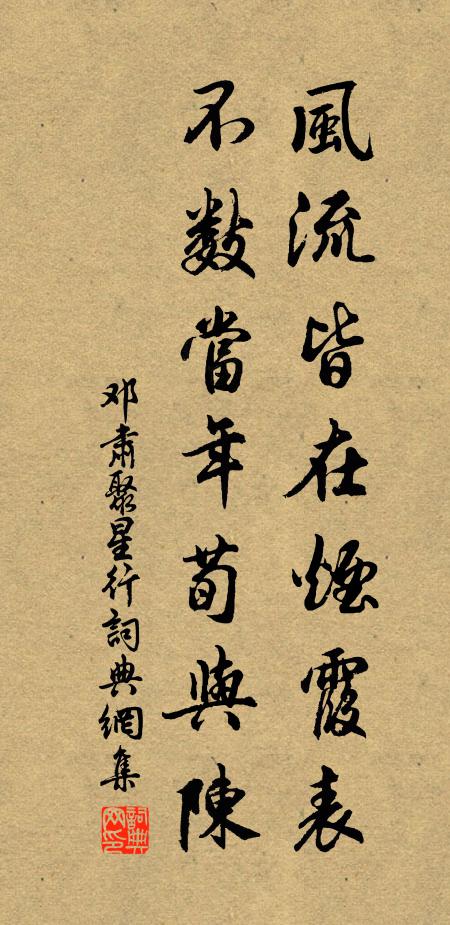 風流皆在煙霞表
不數當年荀與陳
邓肅聚星行詞典網集
詞典网印